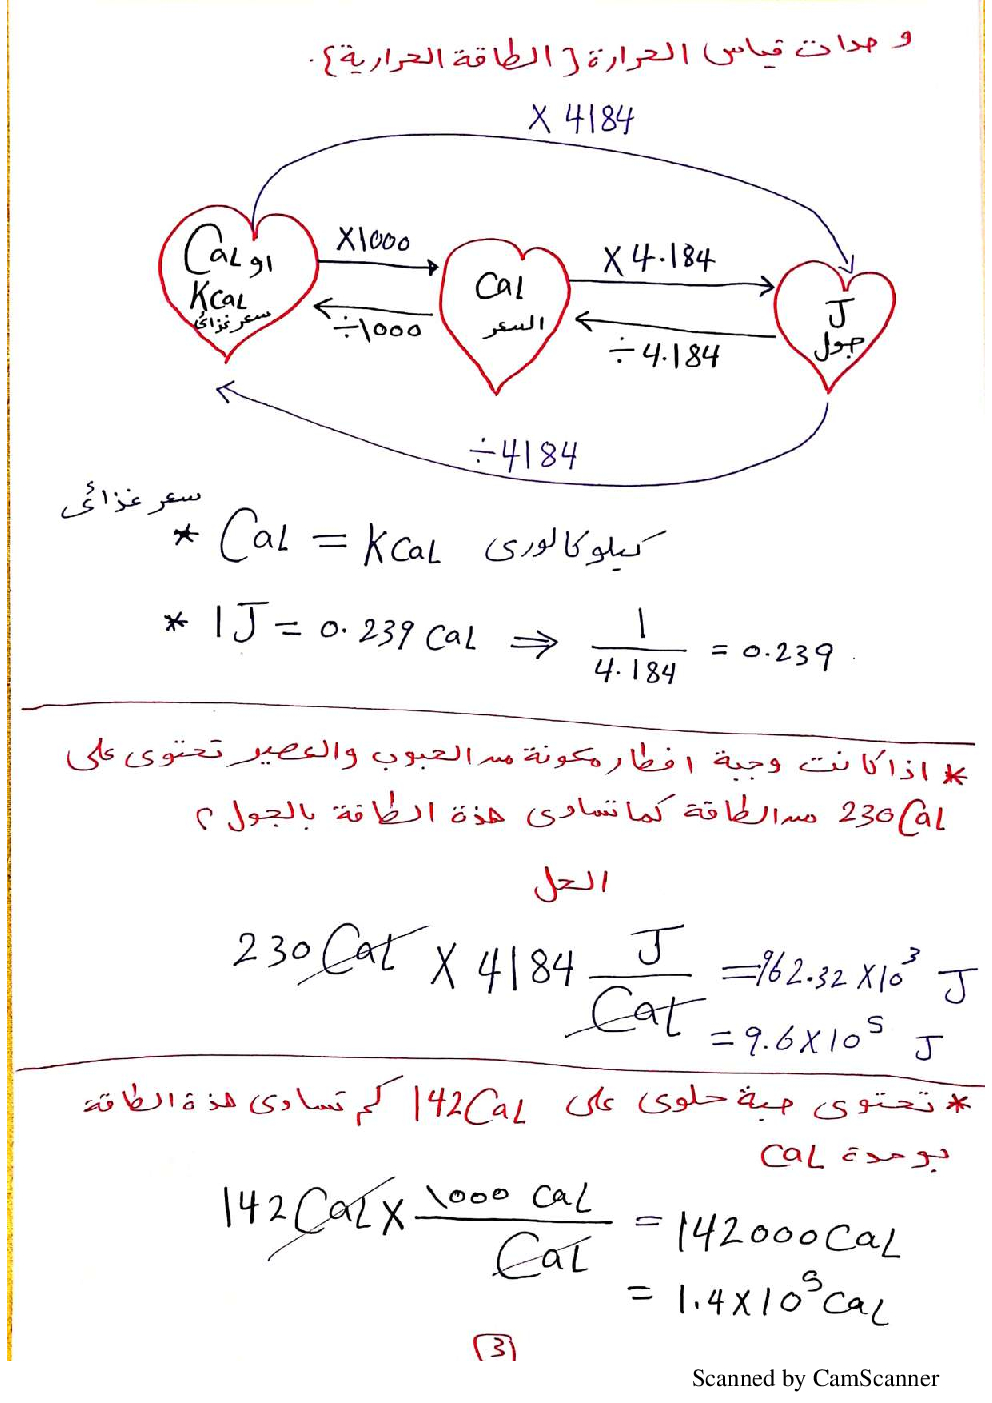 وحدات قياس الحرارة {الطاقة الحرارية}.
X 4184
Cal او
Kcal
سعر غذائى
X1000
÷1000
Cal
السعر
X 4.184
÷ 4.184
J
جول
÷4184
سعر غذائى
* Cal = Kcal كيلو كالورى
* 1J = 0.239 cal ⇒ 1/4.184 = 0.239
* اذا كانت وجبة افطار مكونة من الحبوب والعصير تحتوى على
230 Cal من الطاقة كما تساوى هذة الطاقة بالجول ؟
الحل
230 Cal X 4184 J/Cal = 962.32 X10³ J
= 9.6X10⁵ J
* تحتوى حبة حلوى على 142Cal كم تساوى هذة الطاقة
بوحدة cal
142 Cal X 1000 cal/Cal = 142000 cal
= 1.4X10⁵ cal
(3)
Scanned by CamScanner